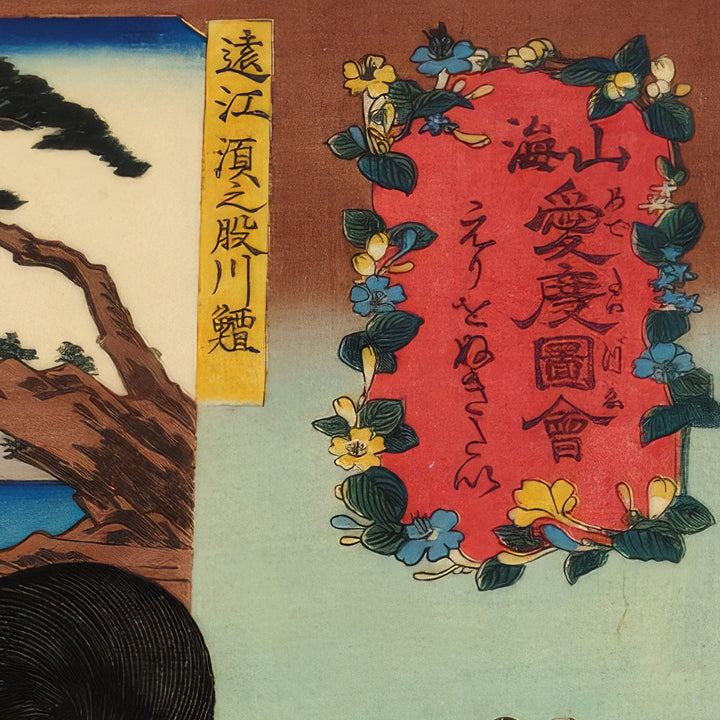 山海
愛度圖會
めでたいづゑ
えりをぬきたい
遠江湏之股川鱣